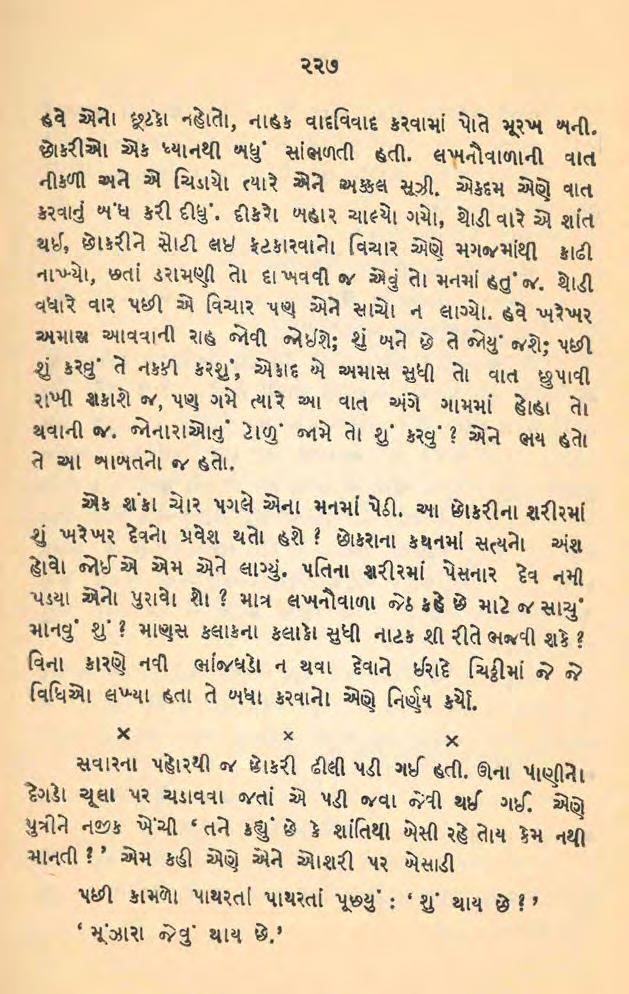 ૨૨૭
હવે એનો છૂટકો નહોતો, નાહક વાદવિવાદ કરવામાં પોતે મૂરખ બની.
છોકરીઓ એક ધ્યાનથી બધું સાંભળતી હતી. લખનૌવાળાની વાત
નીકળી અને એ ચિડાયો ત્યારે એને અક્કલ સૂઝી. એકદમ એણે વાત
કરવાનું બંધ કરી દીધું. દીકરો બહાર ચાલ્યો ગયો, થોડી વારે એ શાંત
થઇ, છોકરીને સોટી લઇ ફટકારવાનો વિચાર એણે મગજમાંથી કાઢી
નાખ્યો, છતાં ડરામણી તો દાખવવી જ એવું તો મનમાં હતું જ. થોડી
વધારે વાર પછી એ વિચાર પણ એને સાચો ન લાગ્યો. હવે ખરેખર
અમાસ આવવાની રાહ જોવી જોઈશે; શું બને છે તે જોયું જશે; પછી
શું કરવું તે નક્કી કરશું, એકાદ બે અમાસ સુધી તો વાત છુપાવી
રાખી શકાશે જ, પણ ગમે ત્યારે આ વાત અંગે ગામમાં હોહા તો
થવાની જ. જોનારાઓનું ટોળું જામે તો શું કરવું ? એને ભય હતો
તે આ બાબતનો જ હતો.
એક શંકા ચોર પગલે એના મનમાં પેઠી. આ છોકરીના શરીરમાં
શું ખરેખર દેવનો પ્રવેશ થતો હશે ? છોકરાના કથનમાં સત્યનો અંશ
હોવો જોઈએ એમ એને લાગ્યું. પતિના શરીરમાં પેસનાર દેવ નમી
પડયા એનો પુરાવો શો ? માત્ર લખનૌવાળા જેઠ કહે છે માટે જ સાચું
માનવું શું ? માણસ કલાકના કલાકો સુધી નાટક શી રીતે ભજવી શકે ?
વિના કારણે નવી ભાંજઘડો ન થવા દેવાને ઈરાદે ચિઠ્ઠીમાં જે જે
વિધિઓ લખ્યા હતા તે બધા કરવાનો એણે નિર્ણય કર્યો.
× × ×
સવારના પહોરથી જ છોકરી ઢીલી પડી ગઈ હતી. ઊના પાણીનો
દેગડો ચૂલા પર ચડાવવા જતાં એ પડી જવા જેવી થઈ ગઈ. એણે
પુત્રીને નજીક ખેંચી ‘ તને કહ્યું છે કે શાંતિથી બેસી રહે તોય કેમ નથી
માનતી ? ’ એમ કહી એણે એને ઓશરી પર બેસાડી
પછી કામળો પાથરતાં પાથરતાં પૂછયું : ‘ શું થાય છે ? ’
‘ મૂંઝારા જેવું થાય છે.’